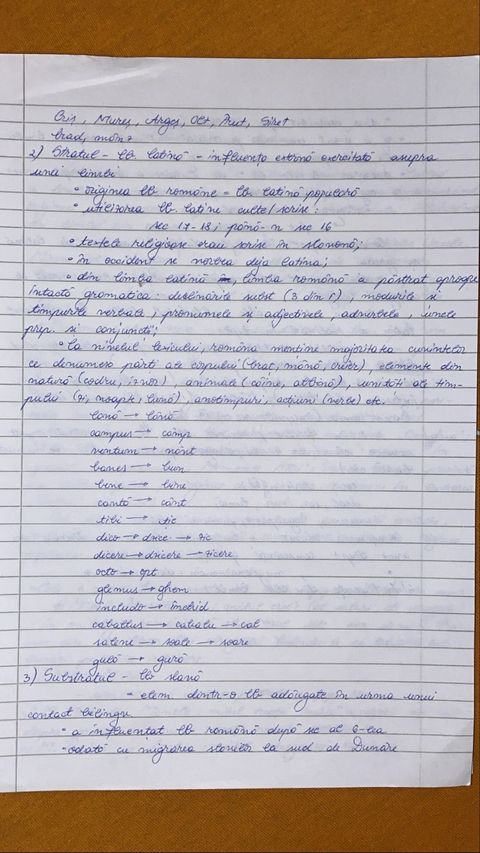 Criș, Mureș, Argeș, Olt, Prut, Siret
brad, mânz
2) Stratul - lb latină - influența externă exercitată asupra
unei limbi
• originea lb române = lb latină populară
• utilizarea lb. latine culte/scrise:
sec 17-18; până-n sec 16
• textele religioase erau scrise în slavonă;
• în occident se vorbea deja latina;
• din limba latină în, limba română a păstrat aproape
intactă gramatica: declinările subst (3 din 5), modurile și
timpurile verbale, pronumele și adjectivele, adverbele, unele
prep. și conjuncții;
• la nivelul lexicului, româna menține majoritatea cuvintelor
ce denumesc părți ale corpului (braț, mână, creier), elemente din
natură (codru, izvor), animale (câine, albină), unități ale tim-
pului (zi, noapte, lună), anotimpuri, acțiuni (verbe) etc.
lană → lână
campus → câmp
ventum → vânt
bonus → bun
bene → bine
cantă → cânt
tibi → ție
dico → dzice → zic
dicere → dzicere → zicere
octo → opt
glemus → ghem
includo → închid
caballus → cabalu → cal
solene → soale → soare
gulă → gură
3) Substratul - lb slavă
= elem. dintr-o lb adăugate în urma unui
contact bilingv.
• a influențat lb română după sec al 6-lea
• odată cu migrarea slavilor la sud de Dunăre